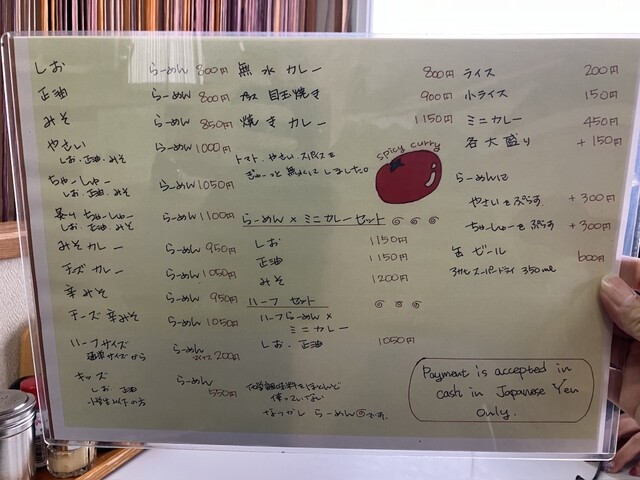 しお らーめん 800円
正油 らーめん 800円
みそ らーめん 850円
やさい らーめん 1000円
しお、正油、みそ
ちゃーしゅー らーめん 1050円
しお、正油、みそ
ちゃーしゅー らーめん 1100円
しお、正油、みそ
みそ カレー らーめん 950円
チーズ カレー らーめん 1050円
辛みそ らーめん 950円
チーズ 辛みそ らーめん 1050円
ハーフサイズ らーめん
通常サイズから 200円
キッズ らーめん 550円
しお 正油
小学生以下の方
無水カレー 800円
目玉焼き 900円
焼きカレー 1150円
トマト、やさい、スパイスを
ぎゅーっと 無水にしました。
spicy curry
らーめん × ミニカレーセット
しお 1150円
正油 1150円
みそ 1200円
ハーフ セット
ハーフらーめん ×
ミニカレー
しお、正油 1050円
化学調味料をほとんど
使っていない
なつかし らーめん です。
ライス 200円
小ライス 150円
ミニカレー 450円
各大盛り +150円
らーめんに
やさいをぷらす +300円
ちゃーしゅーをぷらす +300円
缶ビール 600円
アサヒスーパードライ 350ml
Payment is accepted in
cash in Japanese Yen
only.